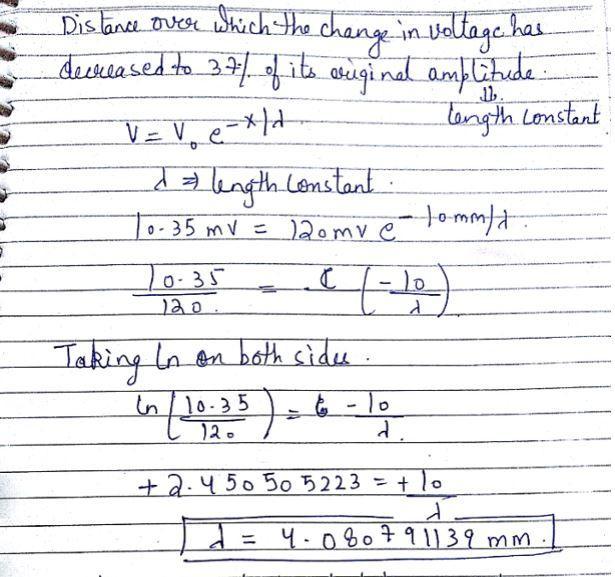 Distance over which the change in voltage has
decreased to 37% of its original amplitude.
⇓
length constant
V = V₀ e^(-x/λ)
λ ⇒ length constant.
10.35 mV = 120mv e^(-10mm/λ).
10.35/120. = e^(-10/λ)
Taking ln on both sides.
ln(10.35/120) = -10/λ.
+2.450505223 = +10/λ
λ = 4.080791139 mm.